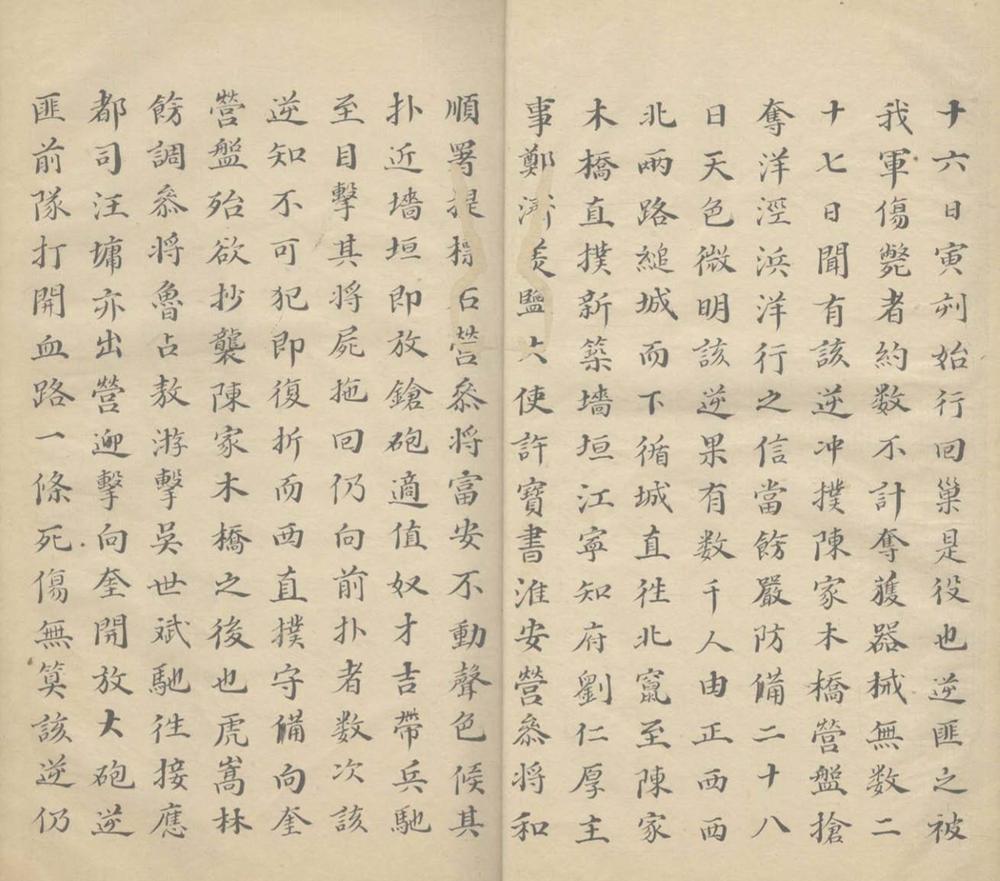 十六日寅刻始行回巢是役也逆匪之被
我軍傷斃者約数不計奪獲器械無数二
十七日聞有該逆冲撲陳家木橋營盤搶
奪洋涇浜洋行之信當飭嚴防備二十八
日天色微明該逆果有数千人由正西西
北兩路縋城而下循城直徃北竄至陳家
木橋直撲新築墻垣江寧知府劉仁厚主
事鄭濟美鹽大使許寶書淮安營叅将和
順署提標右營叅将富安不動聲色候其
扑近墻垣即放鎗砲適值奴才吉帶兵馳
至目擊其将屍拖回仍向前扑者数次該
逆知不可犯即復折而西直撲守備向奎
營盤殆欲抄襲陳家木橋之後也虎嵩林
飭調叅将魯占敖游擊吳世斌馳徃接應
都司汪墉亦出營迎擊向奎開放大砲逆
匪前隊打開血路一條死傷無筭該逆仍